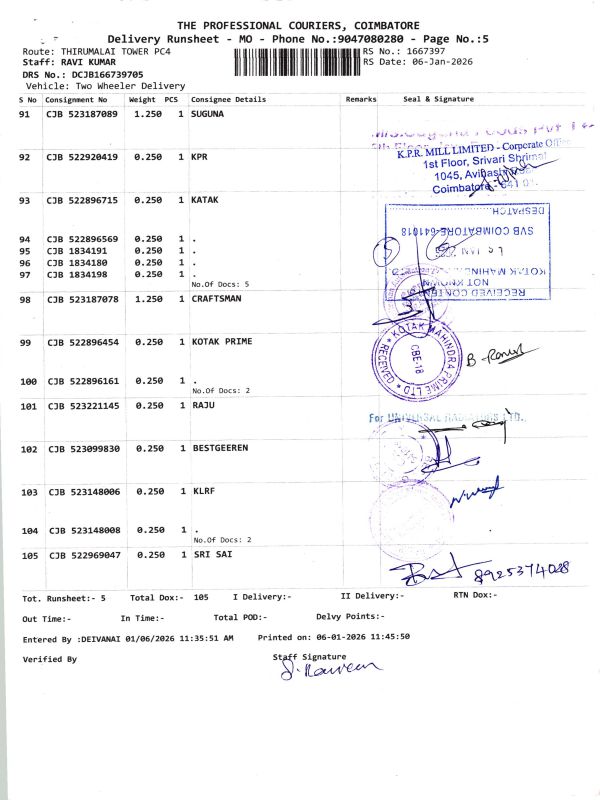 THE PROFESSIONAL COURIERS, COIMBATORE
Delivery Runsheet - MO - Phone No.:9047080280 - Page No.:5
Route: THIRUMALAI TOWER PC4 RS No.: 1667397
Staff: RAVI KUMAR RS Date: 06-Jan-2026
DRS No.: DCJB166739705
Vehicle: Two Wheeler Delivery
S No Consignment No Weight PCS Consignee Details Remarks Seal & Signature
91 CJB 523187089 1.250 1 SUGUNA
92 CJB 522920419 0.250 1 KPR
K.P.R. MILL LIMITED - Corporate Office
1st Floor, Srivari Shrimat
1045, Avinashi
Coimbatore
93 CJB 522896715 0.250 1 KATAK
DESPATCH
SVB COIMBATORE-641018
5
KOTAK MAHIND
NOT KNOWN
RECEIVED CONTENT
94 CJB 522896569 0.250 1 .
95 CJB 1834191 0.250 1 .
96 CJB 1834180 0.250 1 .
97 CJB 1834198 0.250 1 .
No.Of Docs: 5
98 CJB 523187078 1.250 1 CRAFTSMAN
99 CJB 522896454 0.250 1 KOTAK PRIME
KOTAK MAHINDRA PRIME LTD
RECEIVED
CBE-18
100 CJB 522896161 0.250 1 .
No.Of Docs: 2
101 CJB 523221145 0.250 1 RAJU
For UNIVERSAL RADIATORS LTD.,
102 CJB 523099830 0.250 1 BESTGEEREN
103 CJB 523148006 0.250 1 KLRF
104 CJB 523148008 0.250 1 .
No.Of Docs: 2
105 CJB 522969047 0.250 1 SRI SAI
8925374028
Tot. Runsheet:- 5 Total Dox:- 105 I Delivery:- II Delivery:- RTN Dox:-
Out Time:- In Time:- Total POD:- Delvy Points:-
Entered By :DEIVANAI 01/06/2026 11:35:51 AM Printed on: 06-01-2026 11:45:50
Verified By Staff Signature